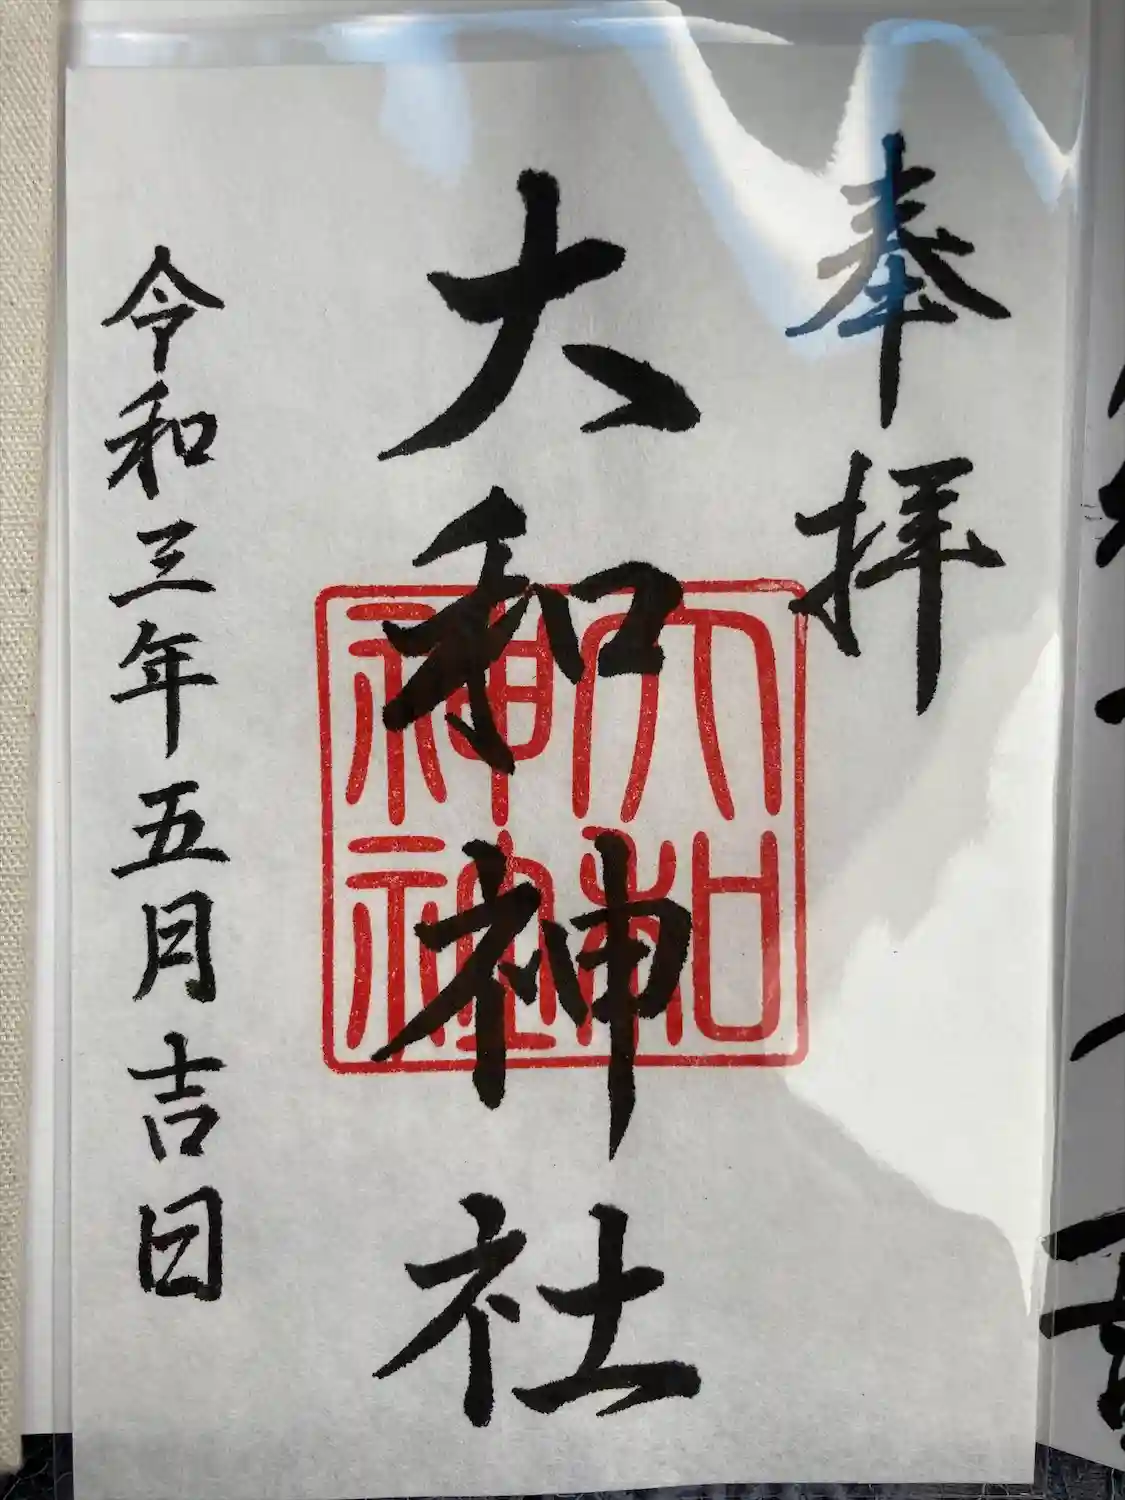 奉拝
大和神社
大和
神社
令和三年五月吉日